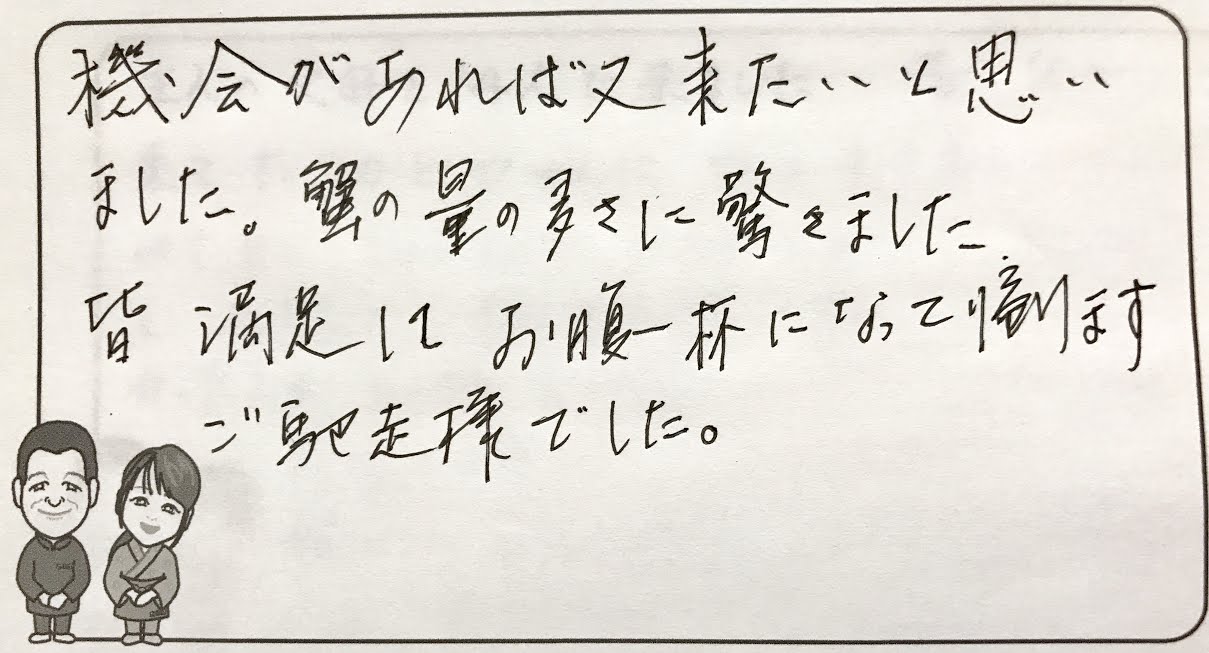 機会があれば又来たいと思い
ました。蟹の量の多さに驚きました
皆 満足して お腹一杯になって帰ります
ご馳走様でした。